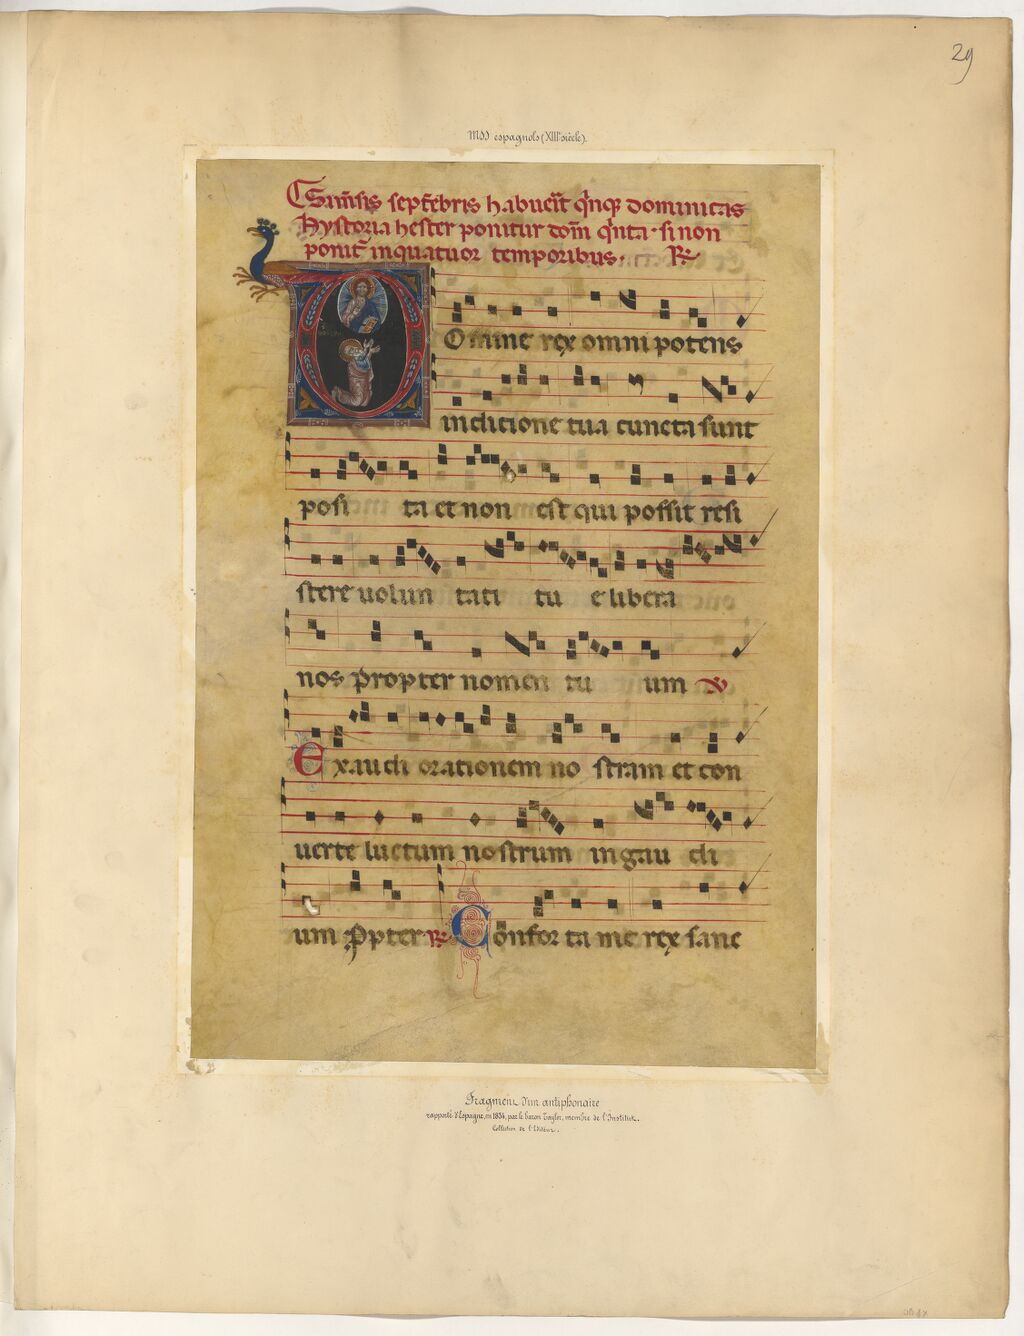 29
MSS espagnols (XIIIe siècle).
Si m̄sis septēbris habueīt q̄nq; dominicas
hystoria hester ponitur dom̄ q̄nta · si non
ponit̄ in quatuor temporibus. R.
Omine rex omnipotens
in dicione tua cuncta sunt
posi ta et non est qui possit resi
stere uolun tati tu e libera
nos propter nomen tu um V
Exaudi orationem no stram et con
uerte luctum nostrum in gau di
um Ppter R Confor ta me rex sanc
Fragment d'un antiphonaire
rapporté d'Espagne, en 1834, par le baron Taylor, membre de l'Institut.
Collection de l'Editeur.